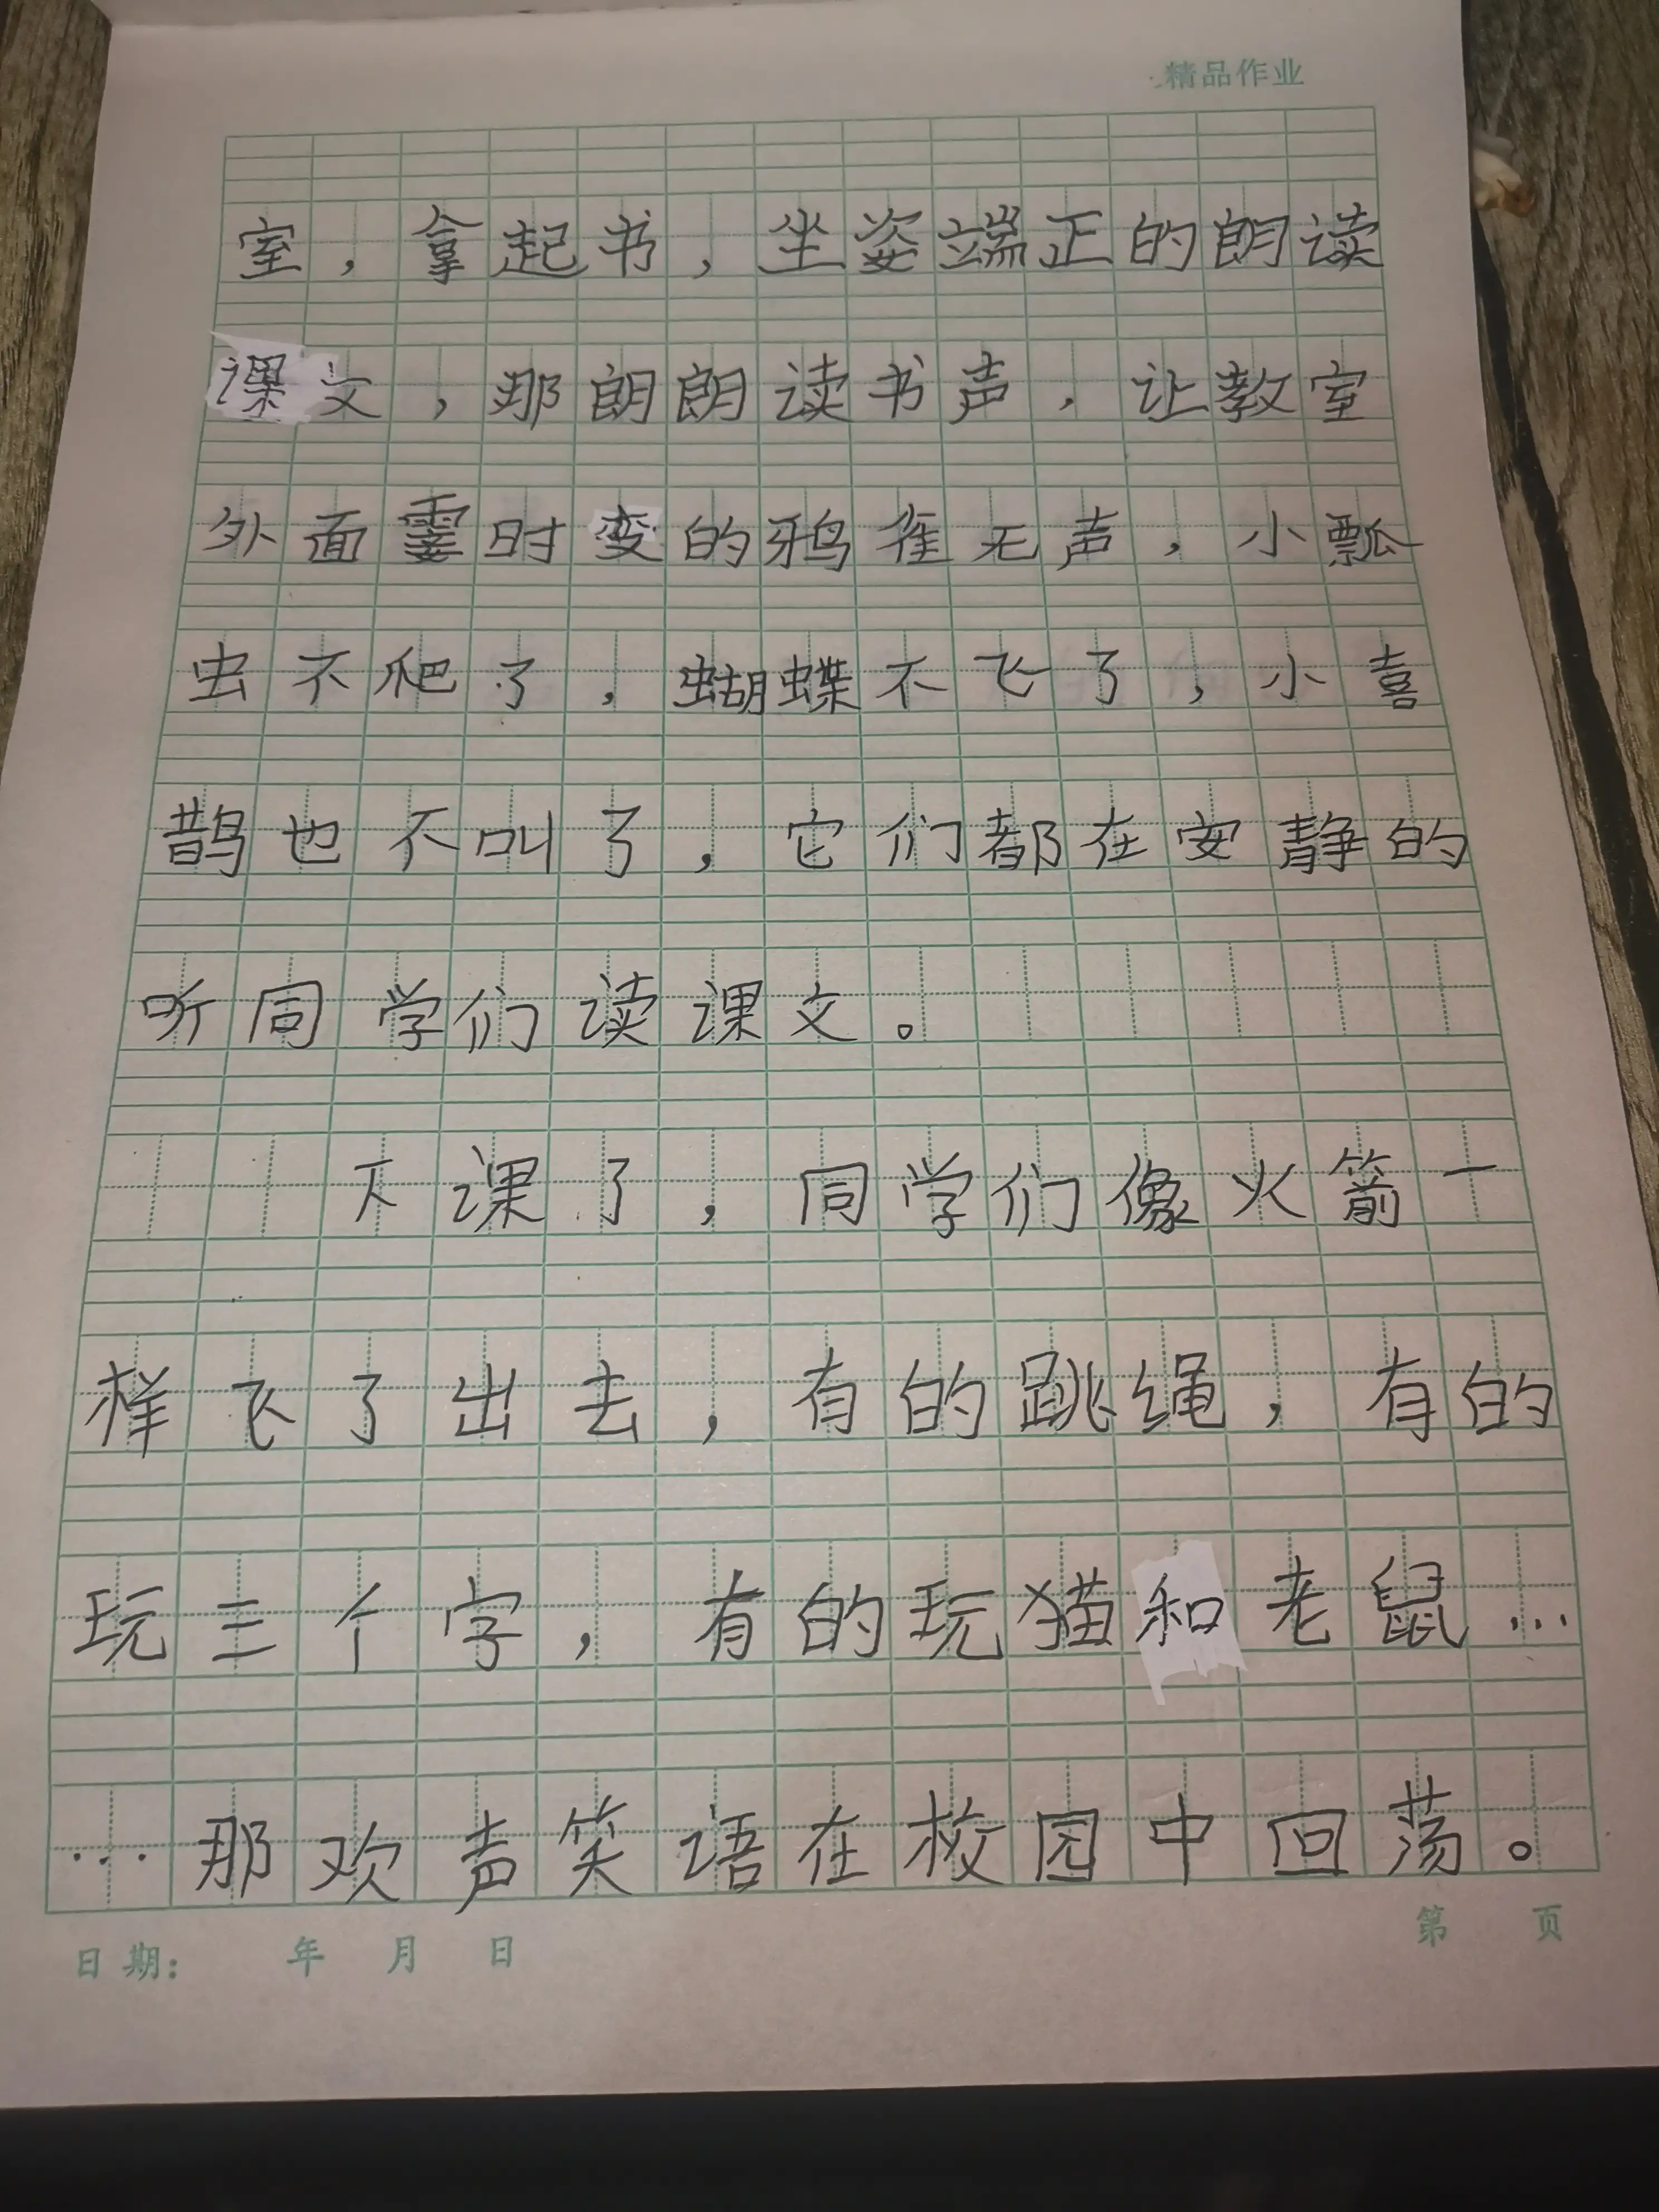 精品作业
室，拿起书，坐姿端正的朗读
课文，那朗朗读书声，让教室
外面霎时变的鸦雀无声，小瓢
虫不爬了，蝴蝶不飞了，小喜
鹊也不叫了，它们都在安静的
听同学们读课文。
下课了，同学们像火箭一
样飞了出去，有的跳绳，有的
玩三个字，有的玩猫和老鼠…
…那欢声笑语在校园中回荡。
日期： 年 月 日 第 页